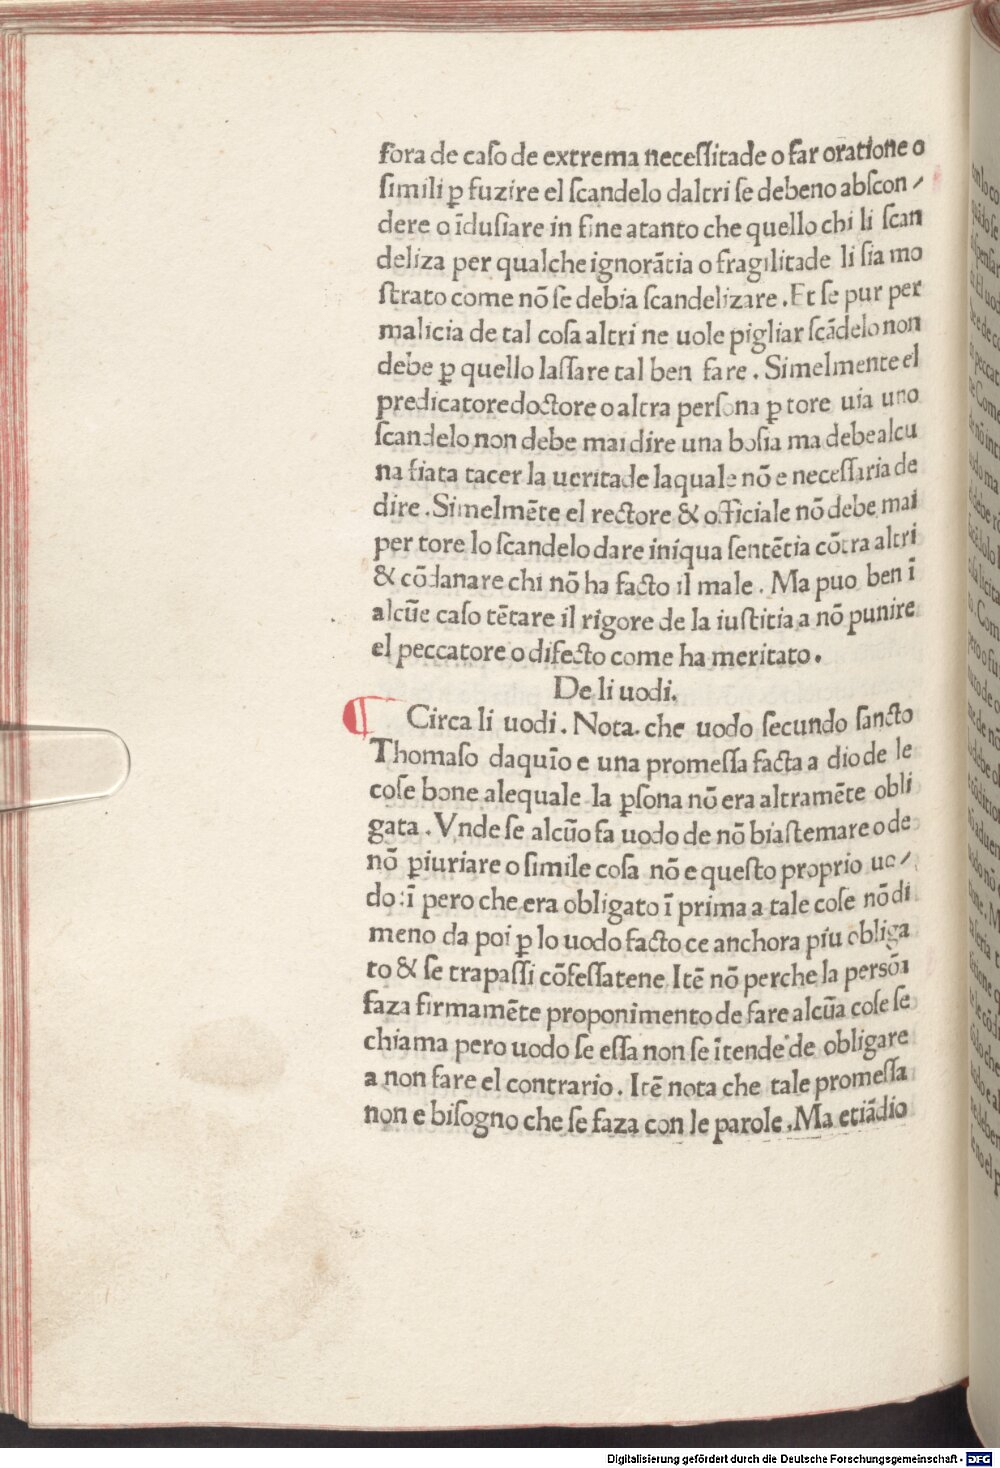 fora de caſo de extrema neceſſitade o far oratione o
ſimili ꝑ fuzire el ſcandelo daltri ſe debeno abſcon⸗
dere o īduſiare in fine atanto che quello chi li ſcan
deliza per qualche ignorātia o fragilitade li ſia mo
ſtrato come nō ſe debia ſcandelizare. Et ſe pur per
malicia de tal coſa altri ne uole pigliar ſcādelo non
debe ꝑ quello laſſare tal ben fare. Simelmente el
predicatore doctore o altra perſona ꝑ tore uia uno
ſcandelo non debe mai dire una boſia ma debe alcu
na fiata tacer la ueritade laquale nō e neceſſaria de
dire. Simelmēte el rectore & officiale nō debe mai
per tore lo ſcandelo dare iniqua ſentētia cōtra altri
& cōdanare chi nō ha facto il male. Ma puo ben ī
alcūe caſo tētare il rigore de la iuſtitia a nō punire
el peccatore o difecto come ha meritato.
De li uodi.
¶ Circa li uodi. Nota. che uodo ſecundo ſancto
Thomaſo daquīo e una promeſſa facta a dio de le
coſe bone alequale la ꝑſona nō era altramēte obli
gata. Vnde ſe alcūo fa uodo de nō biaſtemare o de
nō ꝑiuriare o ſimile coſa nō e queſto proprio uo⸗
do: ī pero che era obligato ī prima a tale coſe nō di
meno da poi ꝑ lo uodo facto ce anchora piu obliga
to & ſe trapaſſi cōfeſſatene Itē nō perche la perſōa
faza firmamēte proponimento de fare alcūa coſe ſe
chiama pero uodo ſe eſſa non ſe ītende de obligare
a non fare el contrario. Itē nota che tale promeſſa
non e biſogno che ſe faza con le parole. Ma etiādio
Digitalisierung gefördert durch die Deutsche Forschungsgemeinschaft - DFG